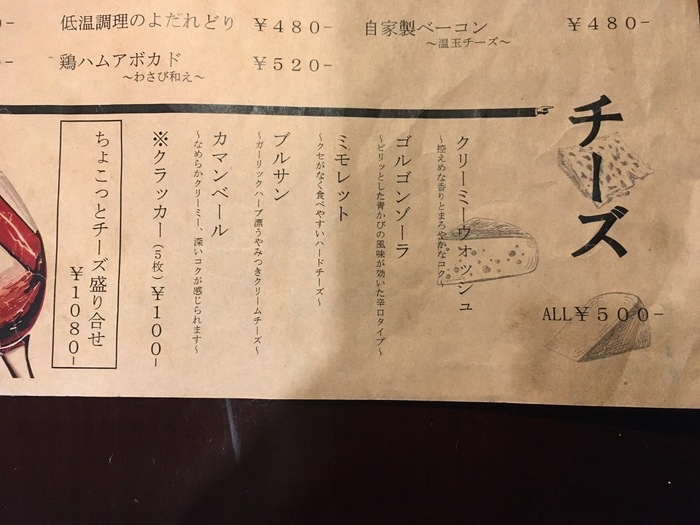 低温調理のよだれどり ¥480-
鶏ハムアボカド ¥520-
~わさび和え~
自家製ベーコン ¥480-
~温玉チーズ~
チーズ
ALL¥500-
クリーミーウォッシュ
~控えめな香りとまろやかなコク~
ゴルゴンゾーラ
~ピリッとした青かびの風味が効いた辛口タイプ~
ミモレット
~クセがなく食べやすいハードチーズ~
ブルサン
~ガーリックハーブ漂うやみつきクリームチーズ~
カマンベール
~なめらかクリーミー、深いコクが感じられます~
※クラッカー(5枚)¥100-
ちょこっとチーズ盛り合せ
¥1080-